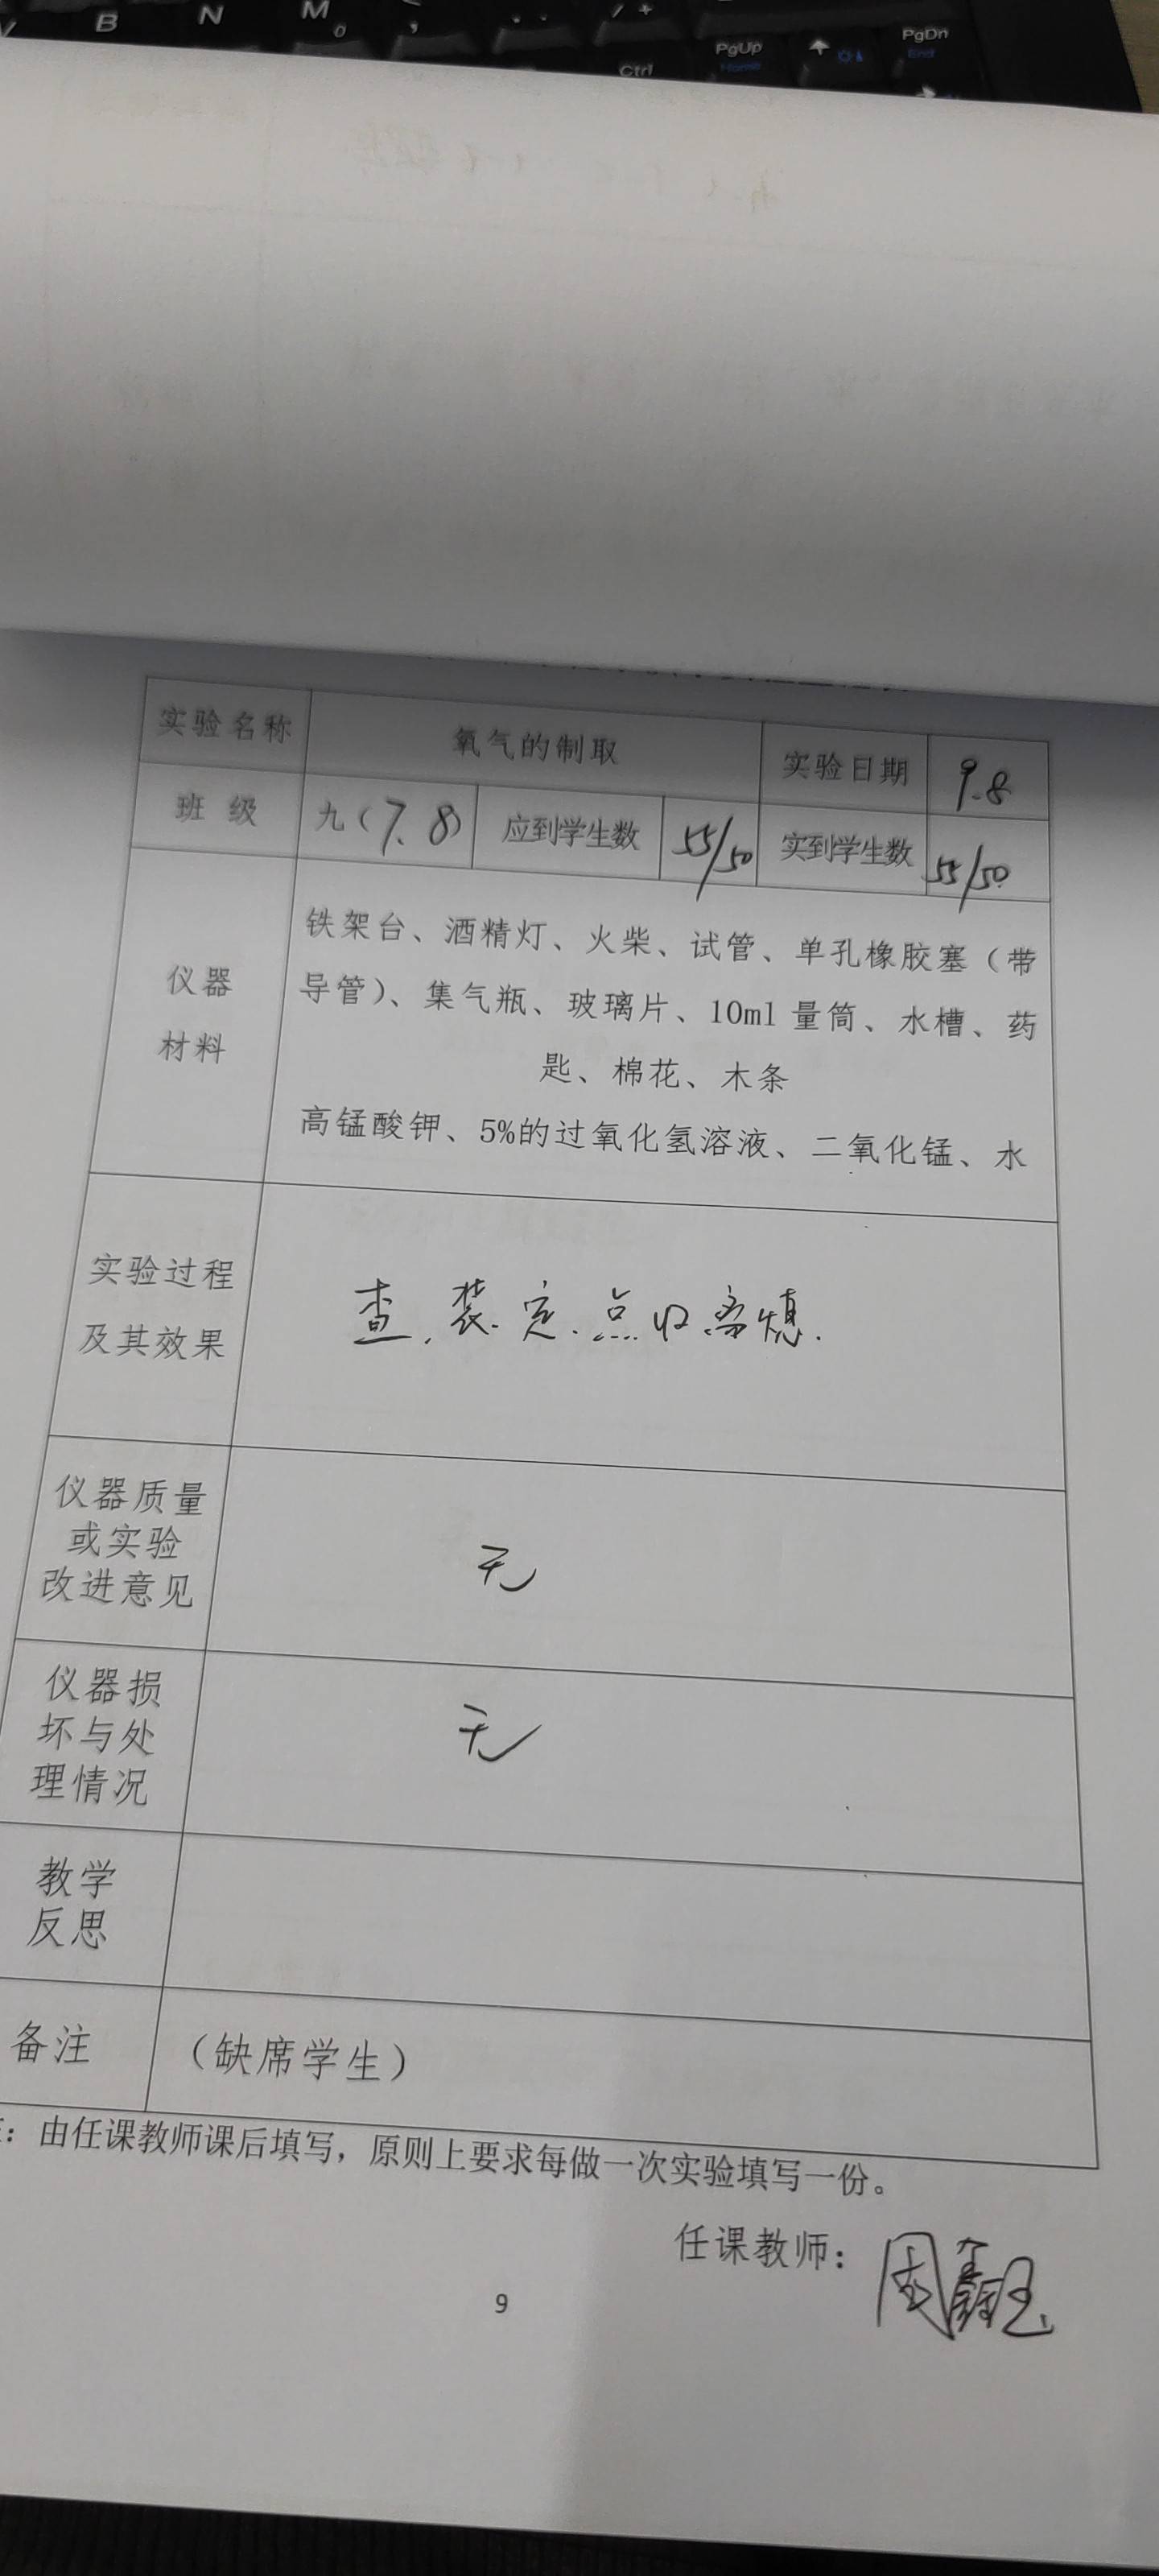 B N M
PgUp
Home
PgDn
End
Ctrl
实验名称 氧气的制取 实验日期 9.8
班 级 九(7.8) 应到学生数 55/50 实到学生数 55/50
铁架台、酒精灯、火柴、试管、单孔橡胶塞(带
仪器 导管)、集气瓶、玻璃片、10ml 量筒、水槽、药
材料 匙、棉花、木条
高锰酸钾、5%的过氧化氢溶液、二氧化锰、水
实验过程
及其效果
查.装.定.点收离熄.
仪器质量
或实验
改进意见
无
仪器损
坏与处
理情况
无
教学
反思
备注 (缺席学生)
:由任课教师课后填写,原则上要求每做一次实验填写一份。
任课教师:周鑫
9